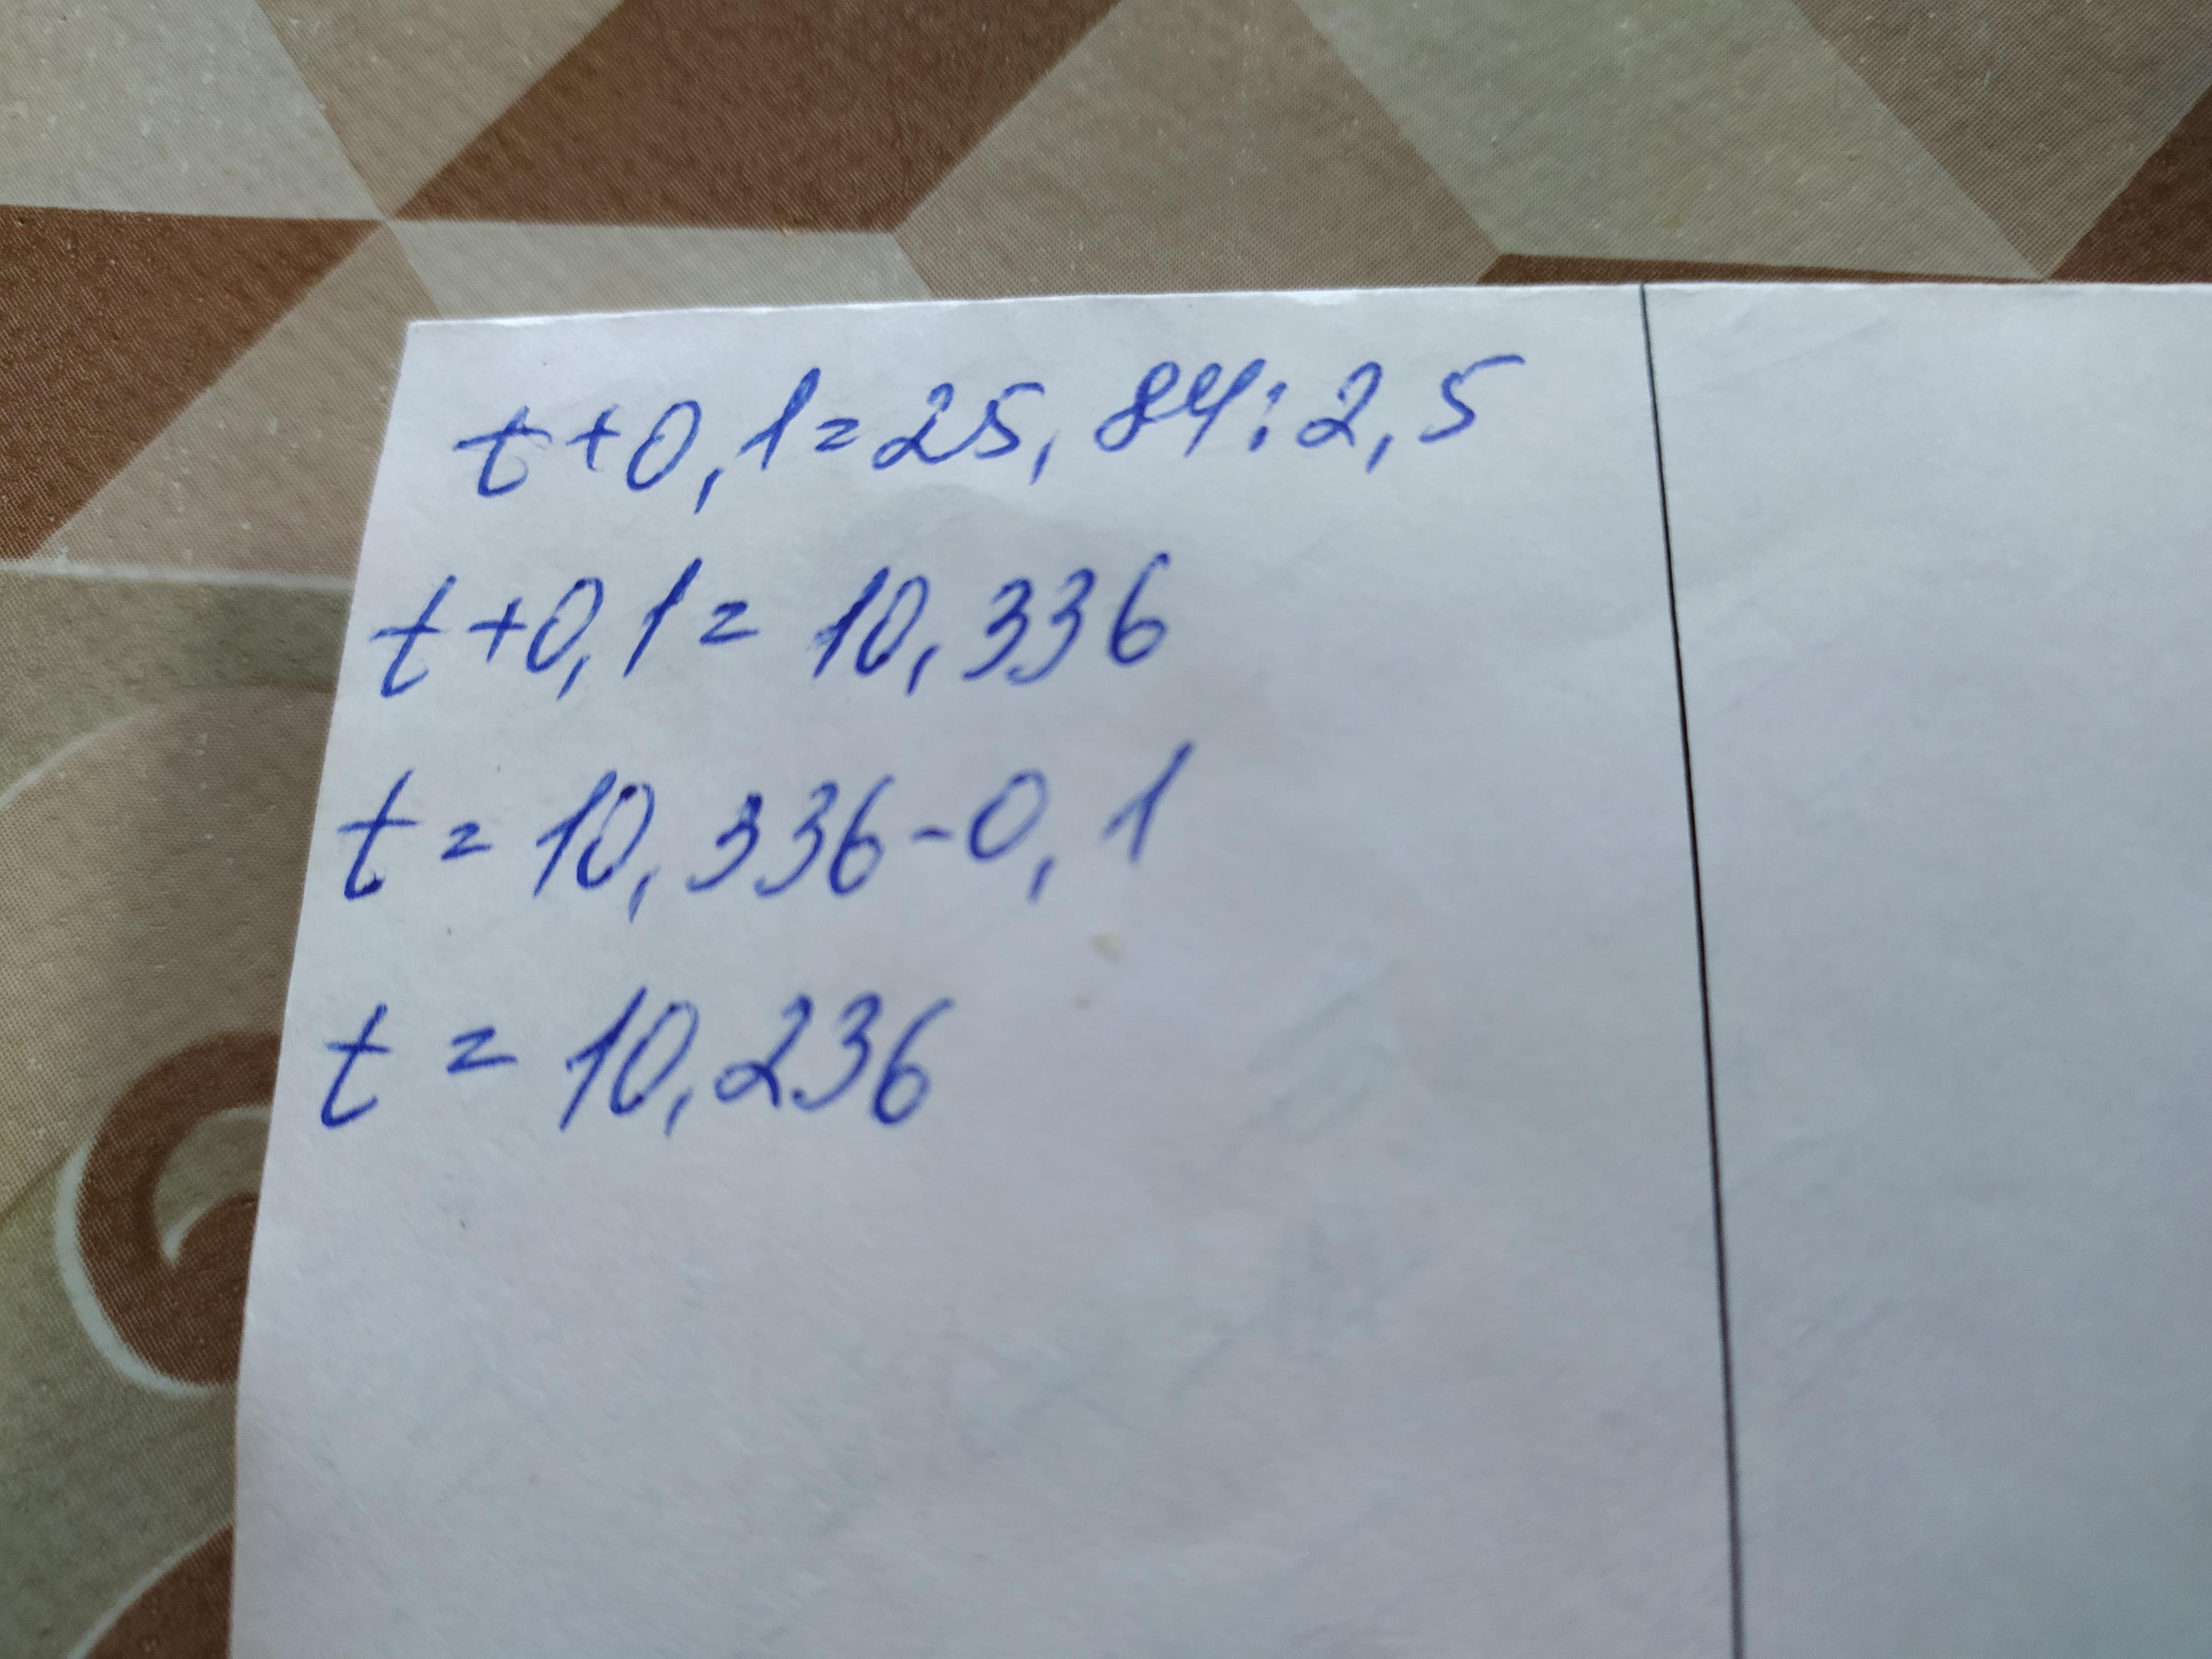 t+0,1=25,84:2,5
t+0,1=10,336
t=10,336-0,1
t=10,236